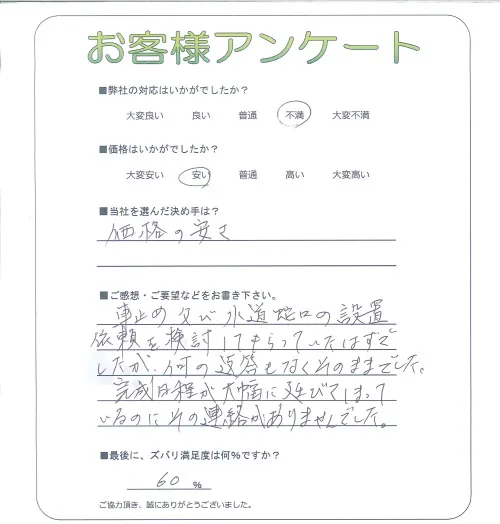 お客様アンケート
■弊社の対応はいかがでしたか？
大変良い 良い 普通 不満 大変不満
■価格はいかがでしたか？
大変安い 安い 普通 高い 大変高い
■当社を選んだ決め手は？
価格の安さ
■ご感想・ご要望などをお書き下さい。
車止め及び水道蛇口の設置
依頼を検討してもらっていたはずで
したが、何の返答もなくそのままでした。
完成日程が大幅に延びてしまって
いるのにその連絡がありませんでした。
■最後に、ズバリ満足度は何％ですか？
60 ％
ご協力頂き、誠にありがとうございました。